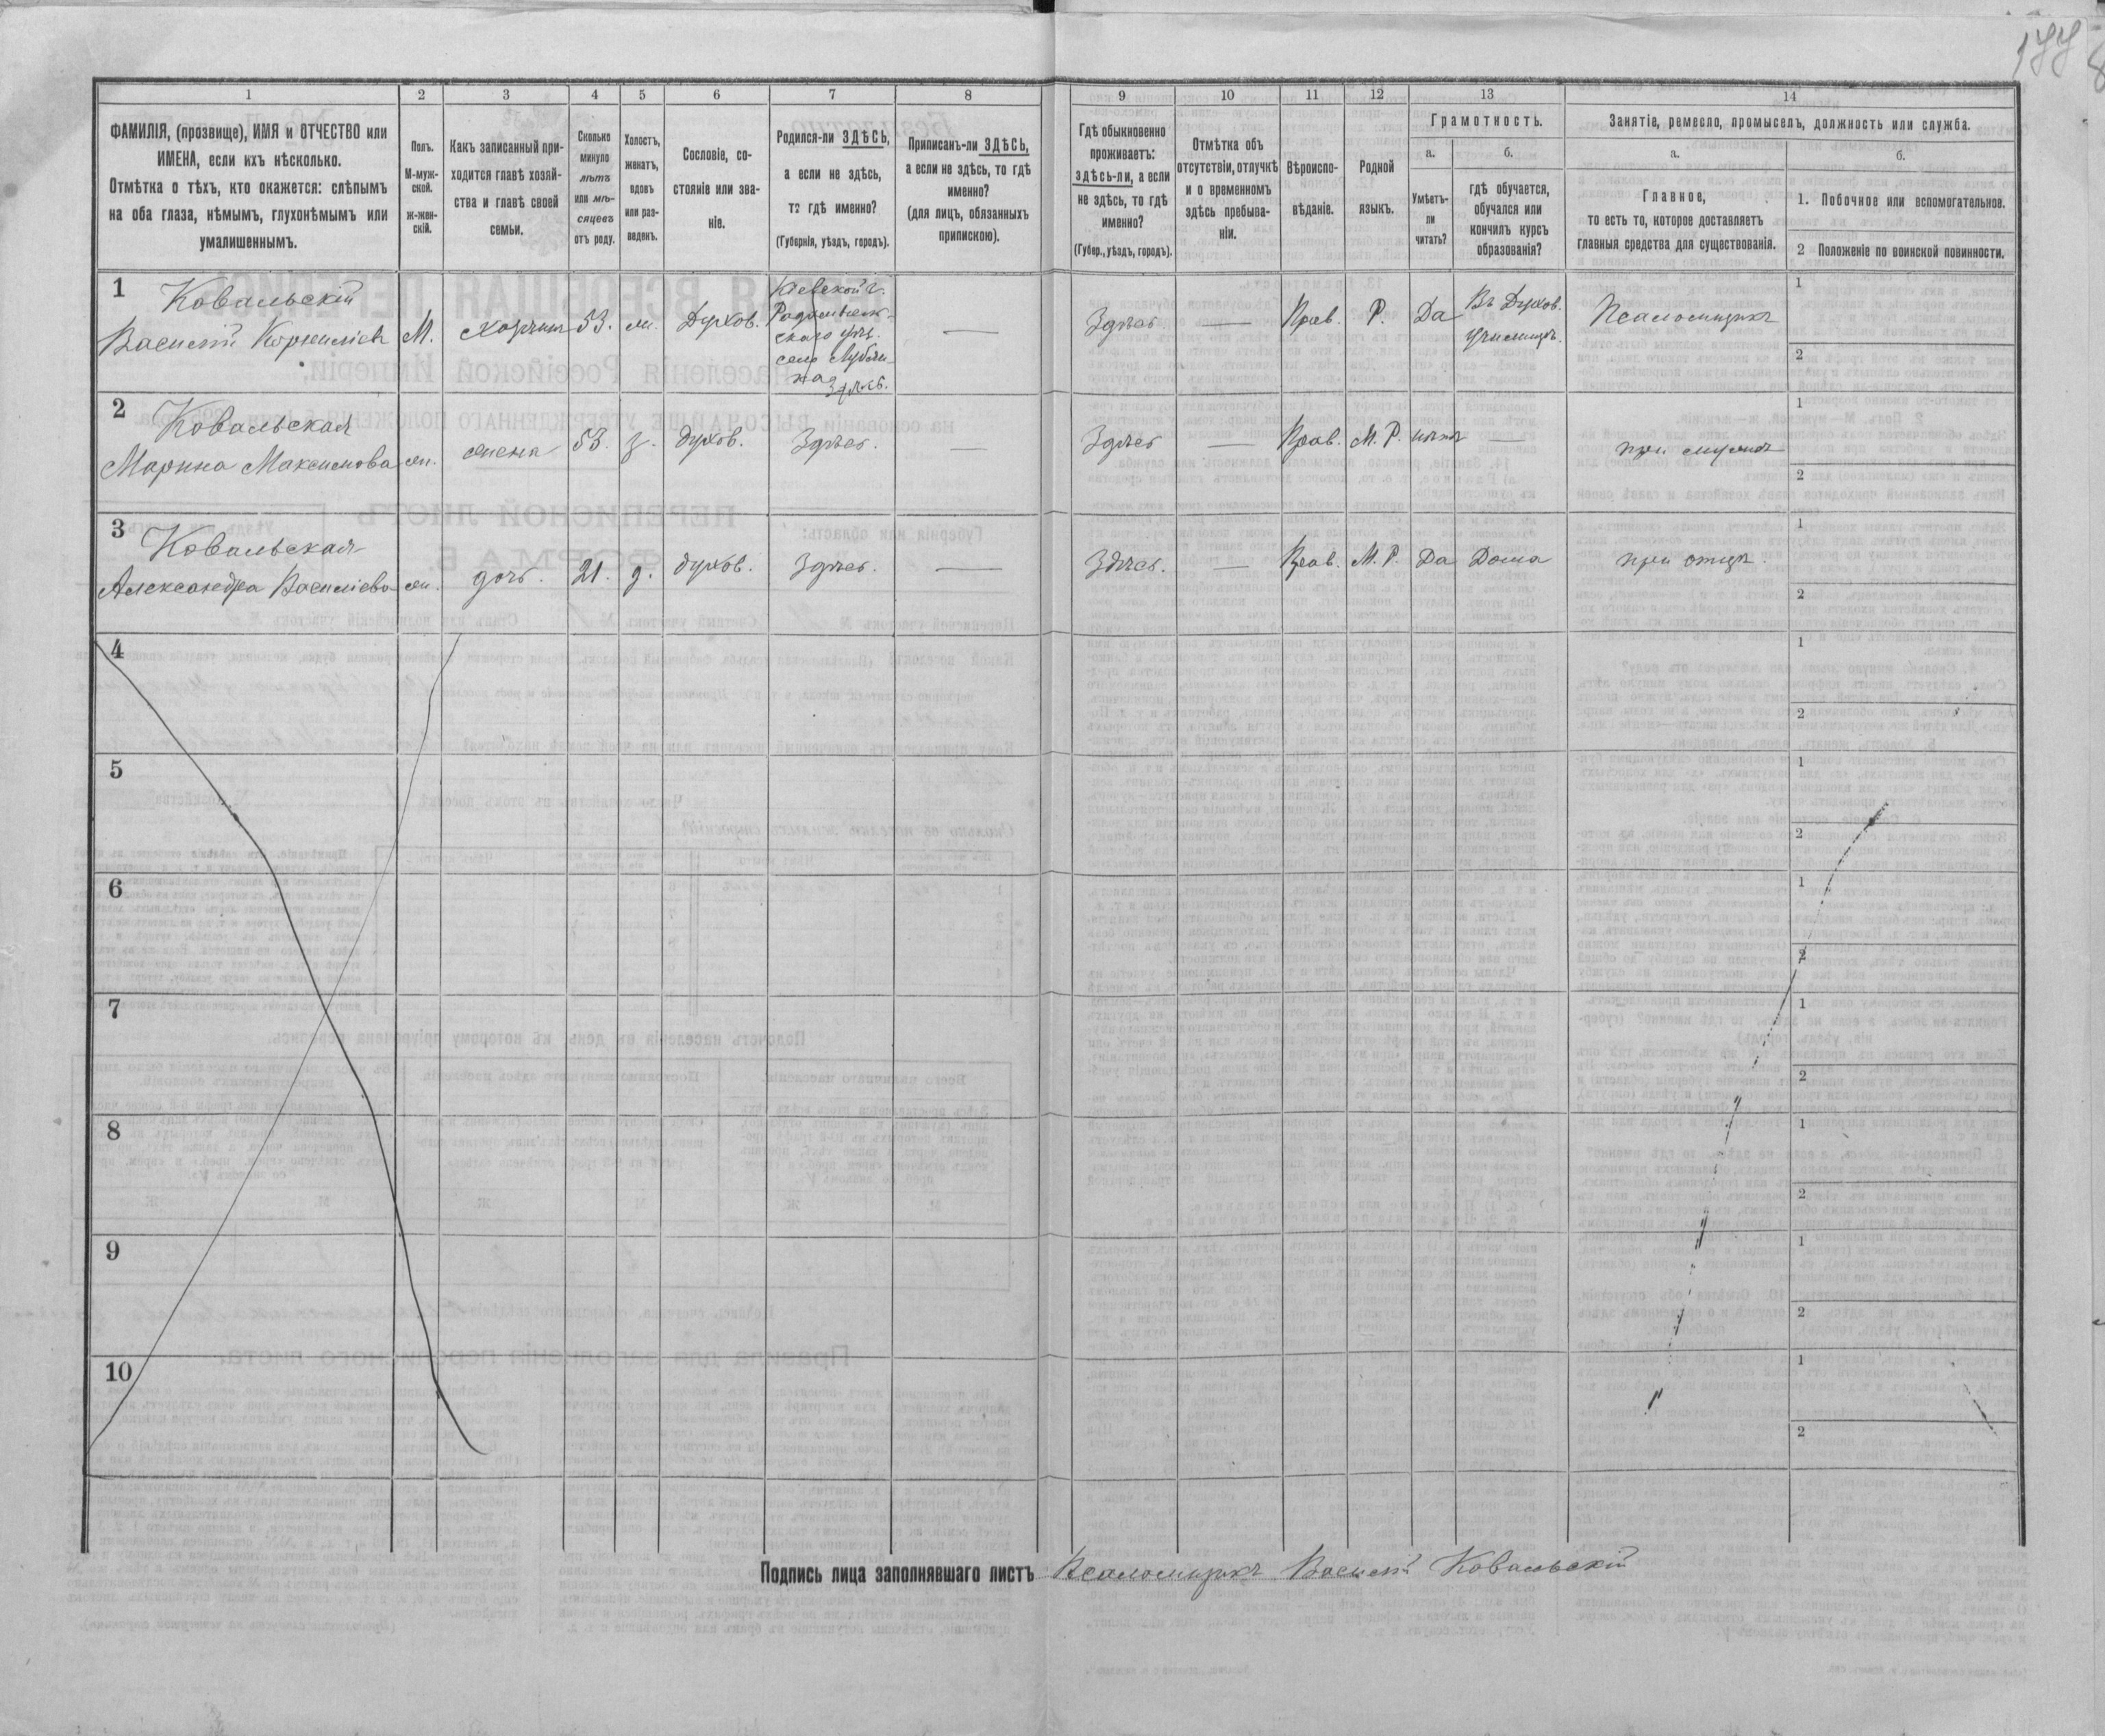 177
1
2
3
4
5
6
7
8
9
10
11
12
13
14
ФАМИЛІЯ, (прозвище), ИМЯ и ОТЧЕСТВО или
ИМЕНА, если ихъ нѣсколько.
Отмѣтка о тѣхъ, кто окажется: слѣпымъ
на оба глаза, нѣмымъ, глухонѣмымъ или
умалишеннымъ.
Полъ.
М-муж-
ской.
ж-жен-
скій.
Какъ записанный при-
ходится главѣ хозяй-
ства и главѣ своей
семьи.
Сколько
минуло
лѣтъ
или мѣ-
сяцевъ
отъ роду.
Холостъ,
женатъ,
вдовъ
или раз-
веденъ.
Сословіе, со-
стояніе или зва-
ніе.
Родился-ли ЗДѢСЬ,
а если не здѣсь,
то гдѣ именно?
(Губернія, уѣздъ, городъ).
Приписанъ-ли ЗДѢСЬ,
а если не здѣсь, то гдѣ
именно?
(для лицъ, обязанныхъ
припискою).
Гдѣ обыкновенно
проживаетъ:
здѣсь-ли, а если
не здѣсь, то гдѣ
именно?
(Губер., уѣздъ, городъ).
Отмѣтка объ
отсутствіи, отлучкѣ
и о временномъ
здѣсь пребыва-
ніи.
Вѣроиспо-
вѣданіе.
Родной
языкъ.
Грамотность.
а.
Умѣетъ-
ли
читать?
б.
гдѣ обучается,
обучался или
кончилъ курсъ
образованія?
Занятіе, ремесло, промыселъ, должность или служба.
а.
Главное,
то есть то, которое доставляетъ
главныя средства для существованія.
б.
1. Побочное или вспомогательное.
2 Положеніе по воинской повинности.
1
Ковальскій
Василій Корниліевъ
М.
хозяинъ
53.
ж.
Духов.
Кіевской г.
село
Здѣсь
—
Здѣсь
—
Прав.
Р.
Да
Въ Духов.
училищѣ.
Псаломщикъ
1
2
2
Ковальская
Марина Максимова
ж.
жена
53.
з.
духов.
Здѣсь.
—
Здѣсь
—
Прав.
М. Р.
нѣтъ
—
при мужѣ
1
2
3
Ковальская
Александра Василіева
ж.
дочь.
21.
д.
духов.
Здѣсь.
—
Здѣсь.
—
Прав.
М. Р.
Да
Дома
при отцѣ.
1
2
4
1
2
5
1
2
6
1
2
7
1
2
8
1
2
9
1
2
10
1
2
Подпись лица заполнявшаго листъ Псаломщикъ Василій Ковальскій